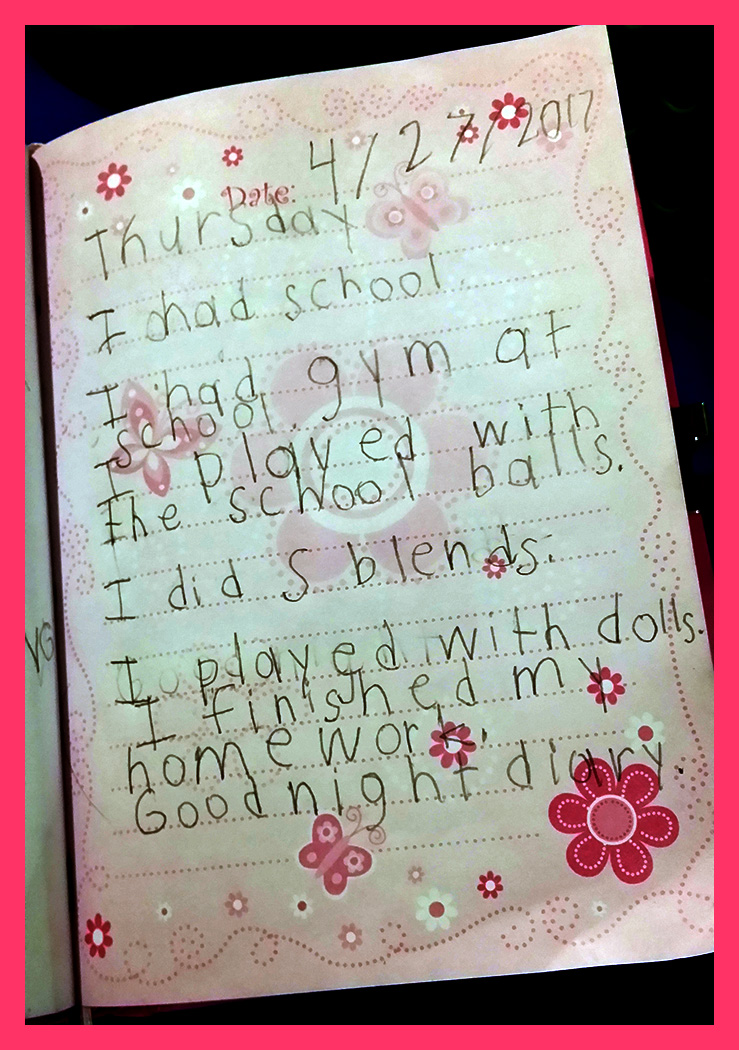 Date: 4/27/2017
Thursday
I had school
I had gym at
school.
I played with
the school balls.
I did S blends.
I played with dolls.
I finished my
homework.
Goodnight diary.
VG